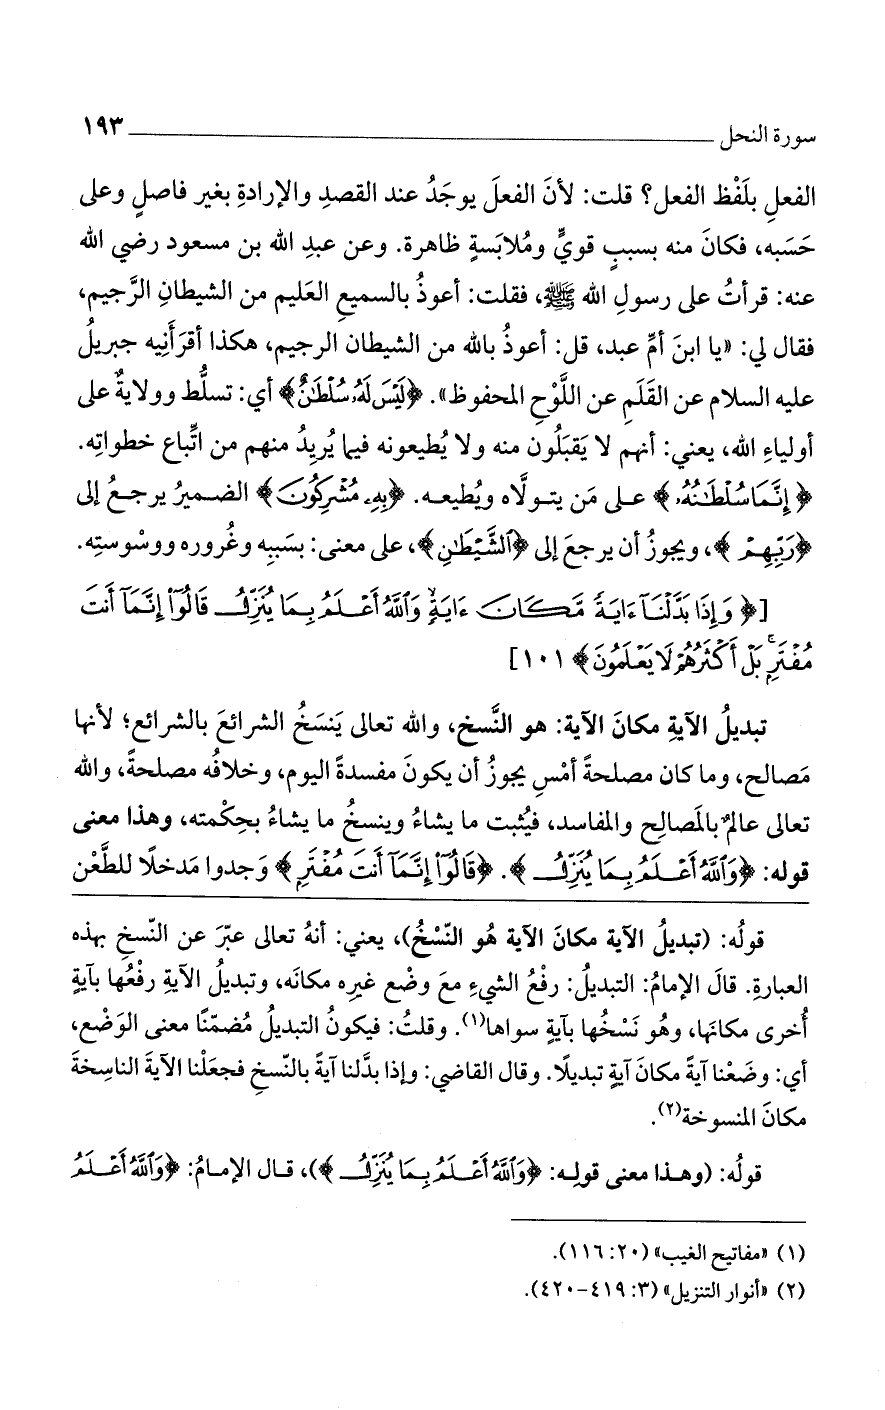 سورة النحل ١٩٣
الفعلِ بلَفْظ الفعل؟ قلت: لأنَ الفعلَ يوجَدُ عند القصدِ والإرادةِ بغير فاصلٍ وعلى
حَسَبه، فكانَ منه بسببٍ قويٍّ ومُلابَسةٍ ظاهرة. وعن عبدِ الله بن مسعود رضي الله
عنه: قرأتُ على رسولِ الله ﷺ، فقلت: أعوذُ بالسميعِ العَليم من الشيطانِ الرَّجيم،
فقال لي: «يا ابنَ أمِّ عبد، قل: أعوذُ بالله من الشيطان الرجيم، هكذا أقرَأَنِيه جبريلُ
عليه السلام عن القَلَمِ عن اللَّوْحِ المحفوظ». ﴿لَيْسَ لَهُۥ سُلْطَـٰنٌ﴾ أي: تسلُّط وولايةٌ على
أولياءِ الله، يعني: أنهم لا يَقبَلُون منه ولا يُطيعونه فيما يُريدُ منهم من اتِّباع خطواتِه.
﴿إِنَّمَا سُلْطَـٰنُهُۥ﴾ على مَن يتولَّاه ويُطيعه. ﴿بِهِۦ مُشْرِكُونَ﴾ الضميرُ يرجعُ إلى
﴿رَبِّهِمْ﴾، ويجوزُ أن يرجعَ إلى ﴿ٱلشَّيْطَـٰنِ﴾، على معنى: بسَببِه وغُروره ووسْوستِه.
[﴿وَإِذَا بَدَّلْنَآ ءَايَةً مَّكَانَ ءَايَةٍ ۙ وَٱللَّهُ أَعْلَمُ بِمَا يُنَزِّلُ قَالُوٓا۟ إِنَّمَآ أَنتَ
مُفْتَرٍۭ ۚ بَلْ أَكْثَرُهُمْ لَا يَعْلَمُونَ﴾ ١٠١]
تبديلُ الآيةِ مكانَ الآية: هو النَّسخ، والله تعالى يَنسَخُ الشرائعَ بالشرائع؛ لأنها
مَصالح، وما كان مصلحةً أمْسِ يجوزُ أن يكونَ مفسدةً اليوم، وخلافُه مصلحةً، والله
تعالى عالمٌ بالمَصالِحِ والمفاسد، فيُثبت ما يشاءُ وينسخُ ما يشاءُ بحِكْمته، وهذا معنى
قوله: ﴿وَٱللَّهُ أَعْلَمُ بِمَا يُنَزِّلُ﴾. ﴿قَالُوٓا۟ إِنَّمَآ أَنتَ مُفْتَرٍ﴾ وَجدوا مَدخلًا للطَّعْن
قولُه: (تبديلُ الآية مكانَ الآية هُو النّسْخُ)، يعني: أنهُ تعالى عبّرَ عن النّسخِ بهذه
العبارةِ. قالَ الإمامُ: التبديلُ: رفْعُ الشيءِ معَ وضْع غيرِه مكانَه، وتبديلُ الآيةِ رفْعُها بآيةٍ
أُخرى مكانَها، وهُو نَسْخُها بآيةٍ سواها(١). وقلتُ: فيكونُ التبديلُ مُضمّنًا معنى الوَضْع،
أي: وضَعْنا آيةً مكانَ آيةٍ تبديلًا. وقال القاضي: وإذا بدَّلنا آيةً بالنّسخِ فجعَلْنا الآيةَ الناسِخةَ
مكانَ المنسوخة(٢).
قولُه: (وهذا معنى قولِه: ﴿وَٱللَّهُ أَعْلَمُ بِمَا يُنَزِّلُ﴾)، قال الإمامُ: ﴿وَٱللَّهُ أَعْلَمُ
(١) «مفاتيح الغيب» (٢٠: ١١٦).
(٢) «أنوار التنزيل» (٣: ٤١٩-٤٢٠).